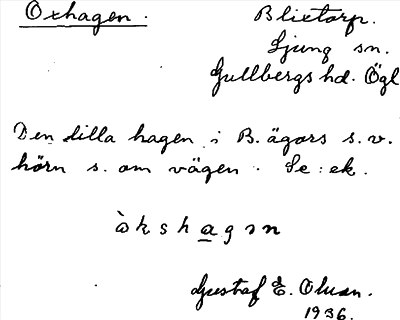 Oxhagen.
Blixtorp.
Ljung sn.
Gullbergs hd. Ögl
Den lilla hagen i B. ägors s.v.
hörn s. om vägen. Se: ek.
òkshagən
Gustaf E. Olsson.
1936.